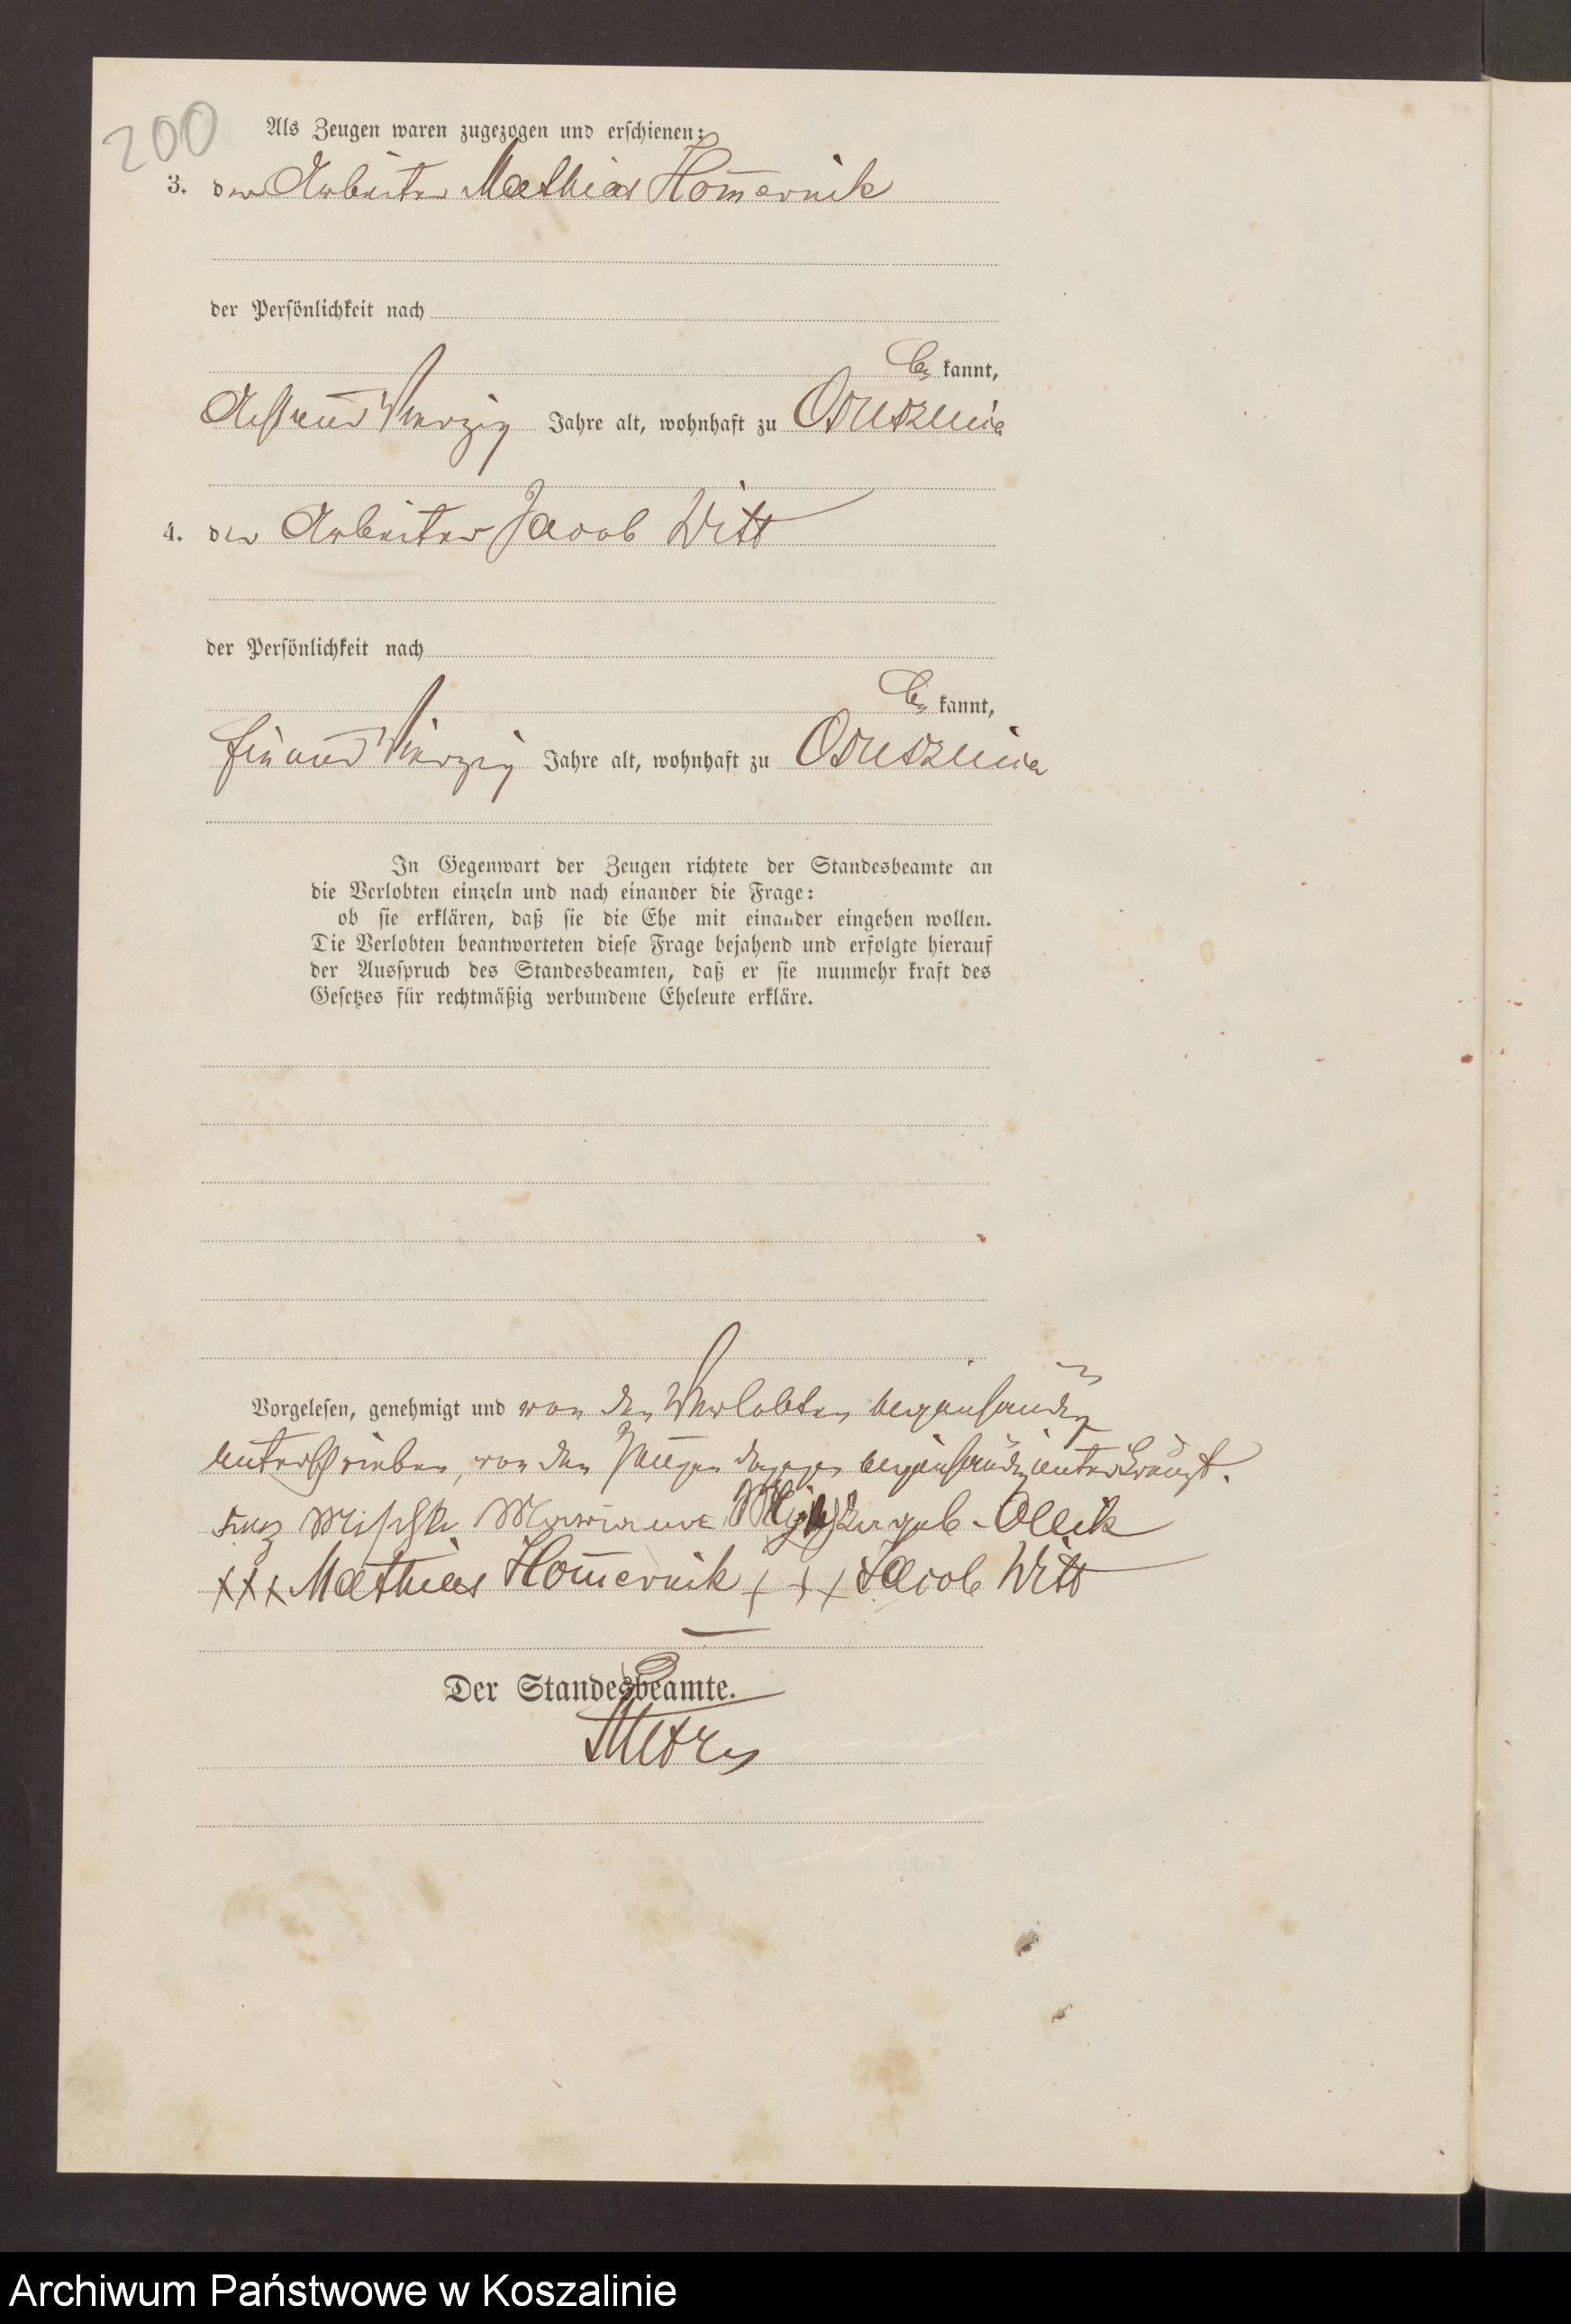 200
Als Zeugen waren zugezogen und erschienen:
3. der Arbeiter Mathias Hom̅ernik
der Persönlichkeit nach
be kannt,
Acht und Vierzig Jahre alt, wohnhaft zu
4. der Arbeiter Jacob Witt
der Persönlichkeit nach
be kannt,
Ein und Vierzig Jahre alt, wohnhaft zu
In Gegenwart der Zeugen richtete der Standesbeamte an
die Verlobten einzeln und nach einander die Frage:
ob sie erklären, daß sie die Ehe mit einander eingehen wollen.
Die Verlobten beantworteten diese Frage bejahend und erfolgte hierauf
der Ausspruch des Standesbeamten, daß er sie nunmehr kraft des
Gesetzes für rechtmäßig verbundene Eheleute erkläre.
Vorgelesen, genehmigt und von den Verlobten eigenhändig
unterschrieben, von den Zeugen dagegen eigenhändig unterkreuzt.
Mischke Marianne geb. Ollik
+++ Mathias Hom̅ernik +++ Jacob Witt
Der Standesbeamte.
Archiwum Państwowe w Koszalinie